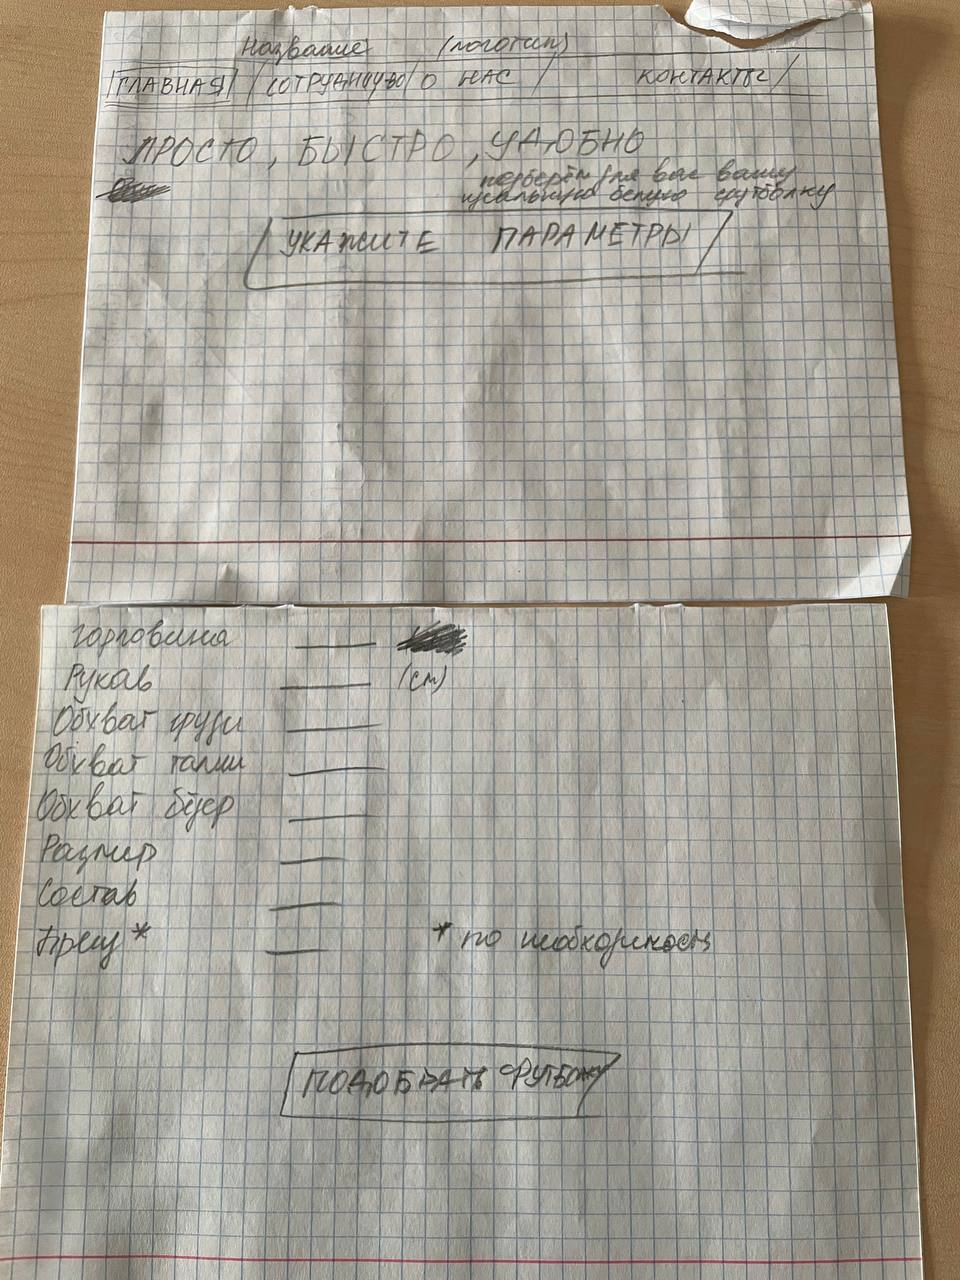 Название (логотип)
ГЛАВНАЯ / СОТРУДНИЧ-ВО / О НАС / КОНТАКТЫ /
ПРОСТО, БЫСТРО, УДОБНО
подберём для вас вашу
идеальную белую футболку
УКАЖИТЕ ПАРАМЕТРЫ
Горловина
Рукав (см)
Обхват груди
Обхват талии
Обхват бёдер
Размер
Состав
Бренд* * по необходимости
ПОДОБРАТЬ ФУТБОЛКУ